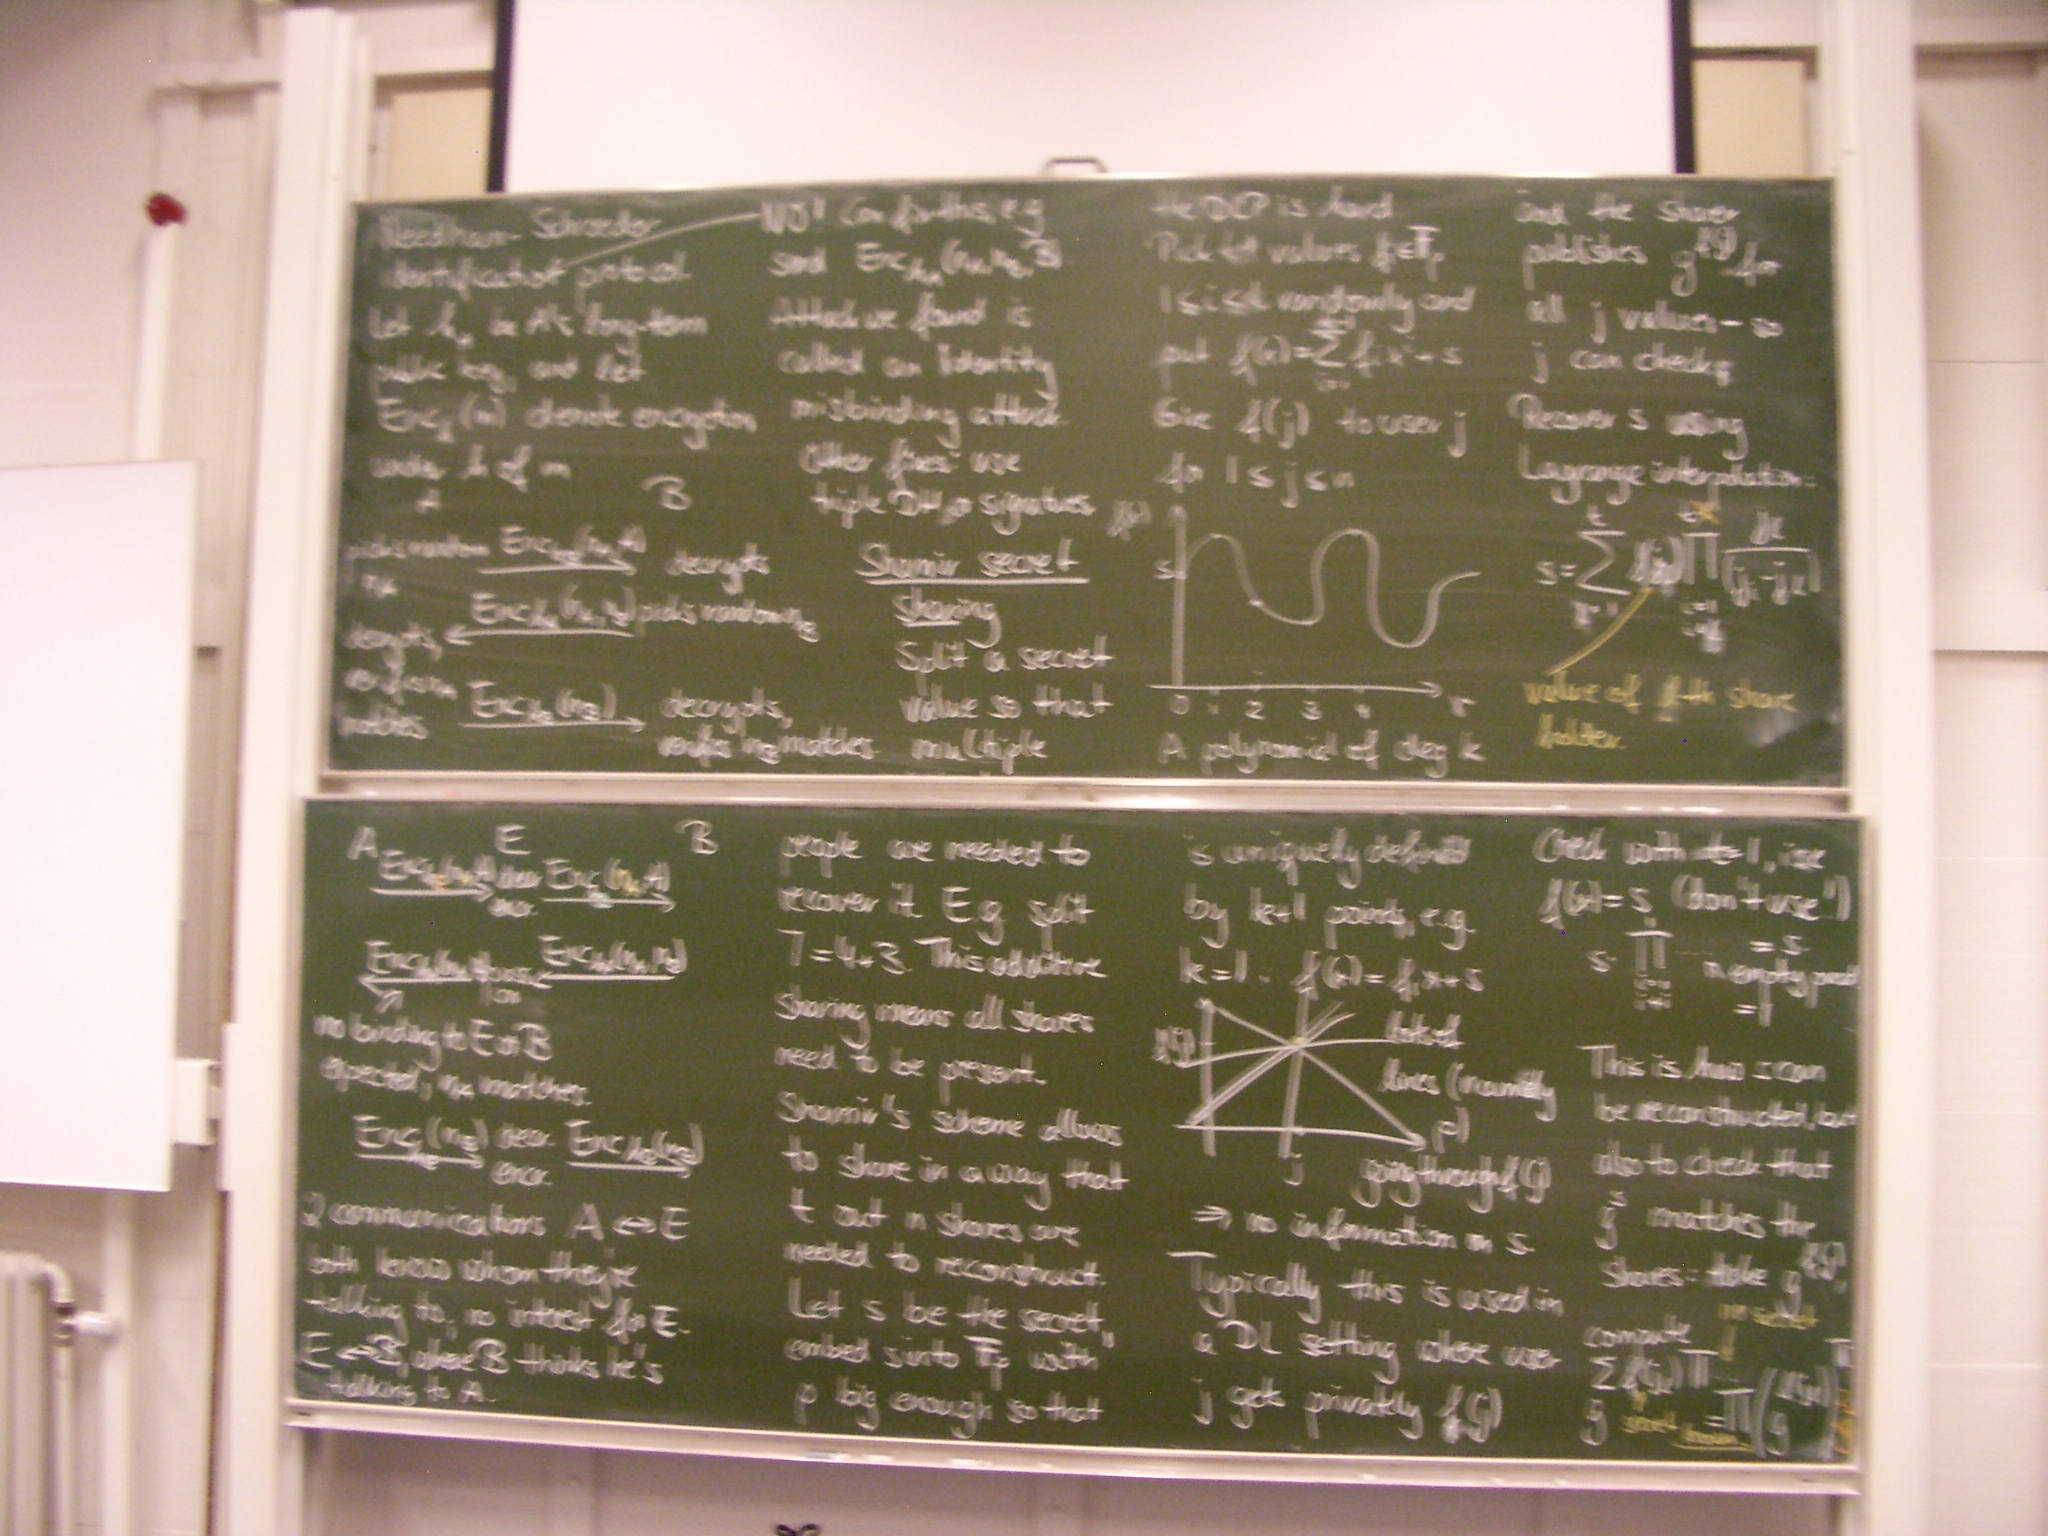 Needham-Schroeder
identification protocol
Let k_A be A's long-term
public key, and let
Enc_k(m) denote encryption
under k of m
A B
picks random n_A Enc_{k_B}(n_A, A) decrypts
Enc_{k_A}(n_A, n_B) picks random n_B
decrypts,
verifies n_A
matches Enc_{k_B}(n_B) decrypts,
verifies n_B matches
NO! Can fix this, e.g.
send Enc_{k_A}(n_A, n_B, B)
Attack we found is
called an identity
misbinding attack.
Other fixes: use
triple DH, or signatures
Shamir secret
sharing
Split a secret
value so that
multiple
the DLP is hard
Pick t-1 values f_i ∈ F_p
1 ≤ i ≤ t-1 randomly and
put f(x) = Σ f_i x^i + s
Give f(j) to user j
for 1 ≤ j ≤ n
f(x)
s
0 1 2 3 4 x
A polynomial of deg k
and the sharer
publishes g^{f(j)} for
all j values - so
j can check
Recover s using
Lagrange interpolation:
s = Σ f(j_k) Π j_i/(j_i - j_k)
value of k-th share
holder.
A E B
Enc_{k_E}(n_A, A) decr encr. Enc_{k_B}(n_A, A)
Enc_{k_A}(n_A, n_B) Enc_{k_A}(n_A, n_B)
no binding to E or B
expected, n_A matches.
Enc_{k_E}(n_B) decr. encr. Enc_{k_B}(n_B)
2 communications A ↔ E
both know whom they're
talking to, no interest for E.
E ↔ B, where B thinks he's
talking to A.
people are needed to
recover it. E.g. split
7 = 4+3. This additive
sharing means all shares
need to be present.
Shamir's scheme allows
to share in a way that
t out n shares are
needed to reconstruct.
Let s be the secret,
embed s into F_p with
p big enough so that
is uniquely defined
by k+1 points, e.g.
k=1: f(x) = f_1 x + s
f(j) lots of
lines (namely
p)
j going through f(j)
⇒ no information on s.
Typically this is used in
a DL setting where user
j gets privately f(j)
Check with t=1, i.e.
f(x) = s (don't use!)
s · Π = s
empty prod
= 1
This is how s can
be reconstructed, but
also to check that
g^s matches the
shares: take g^{f(j)},
no secret
compute
g^{Σ f(j_k) Π} = Π (g^{f(j_k)})^Π
secret known